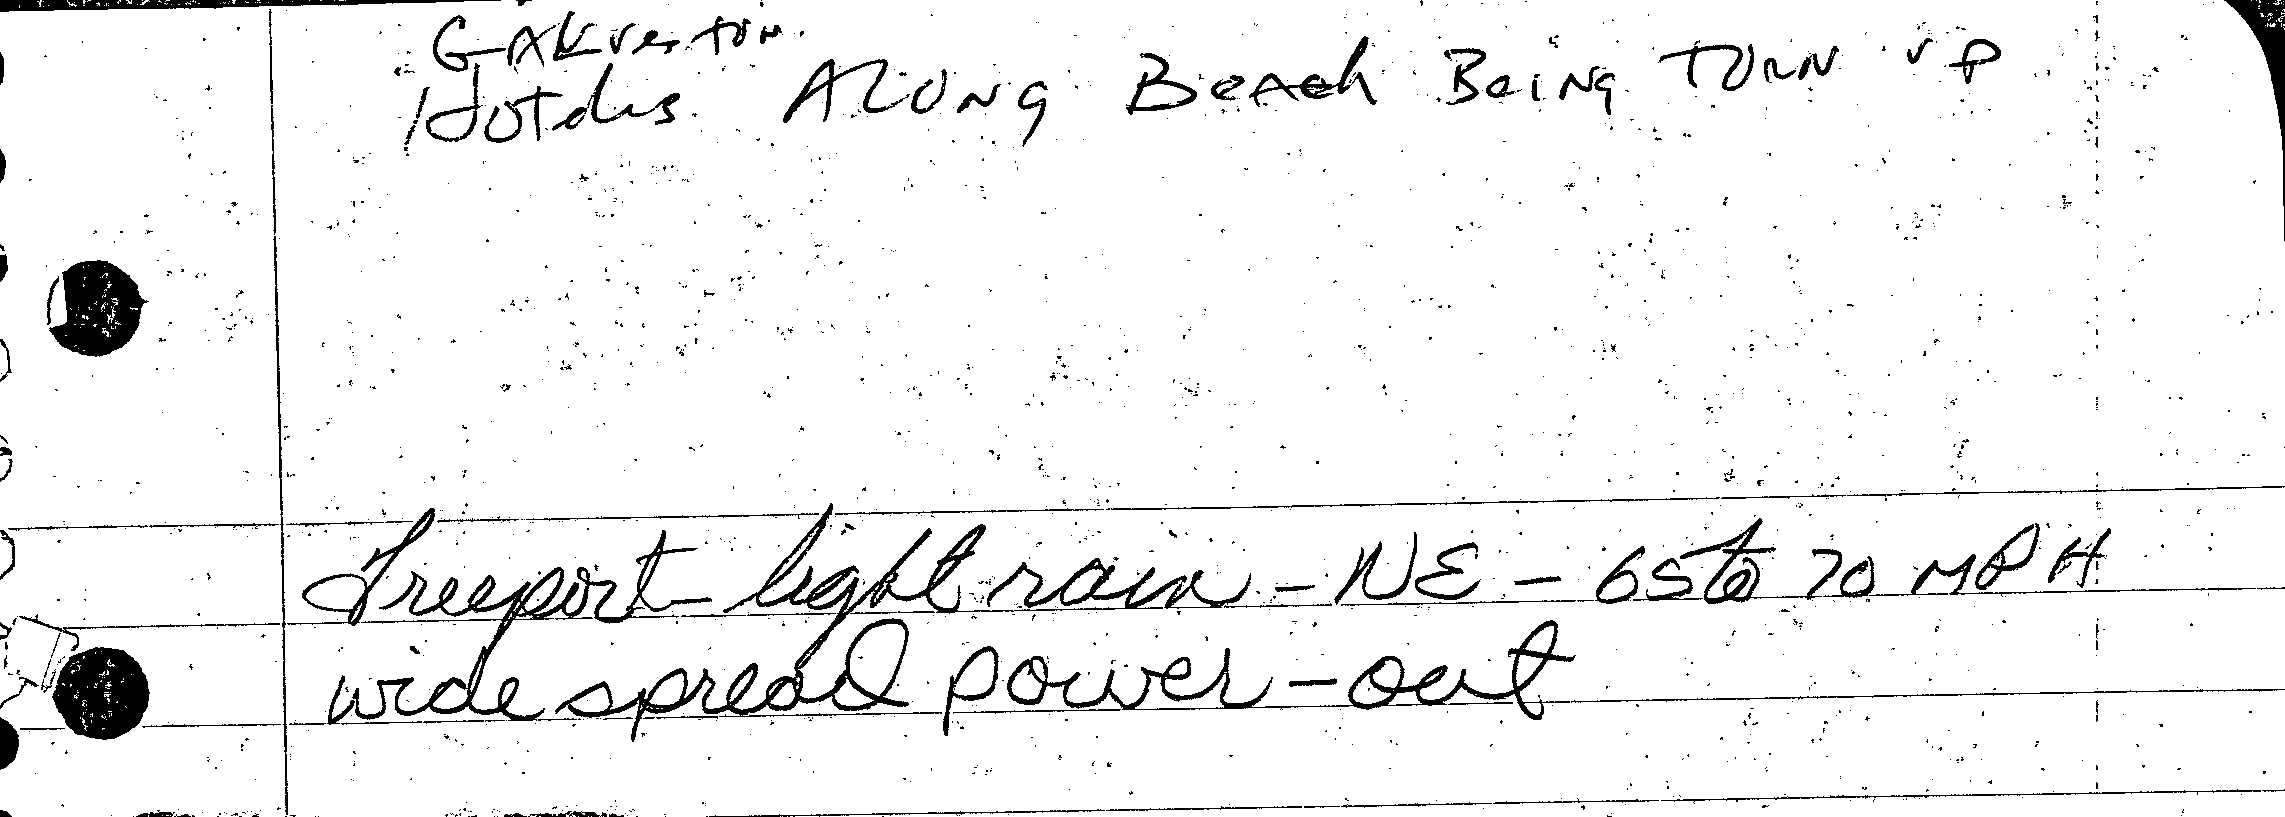 GALVeston
Hotels ALONG BeAch BeiNg TORN UP
Freeport - light rain - NE - 65 to 70 MPH
wide spread power - out